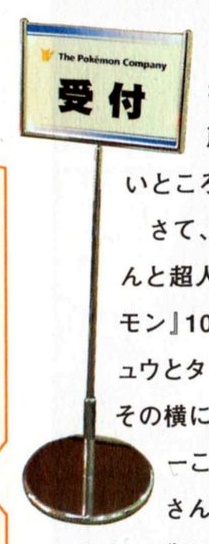 The Pokémon Company
受付
いところ
さて、
んと超人
モン』10
ュウとタ
その横に
ーこ
さん